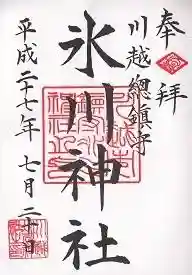 奉拝
川越總鎮守
氷川神社
平成二十七年 七月二十日